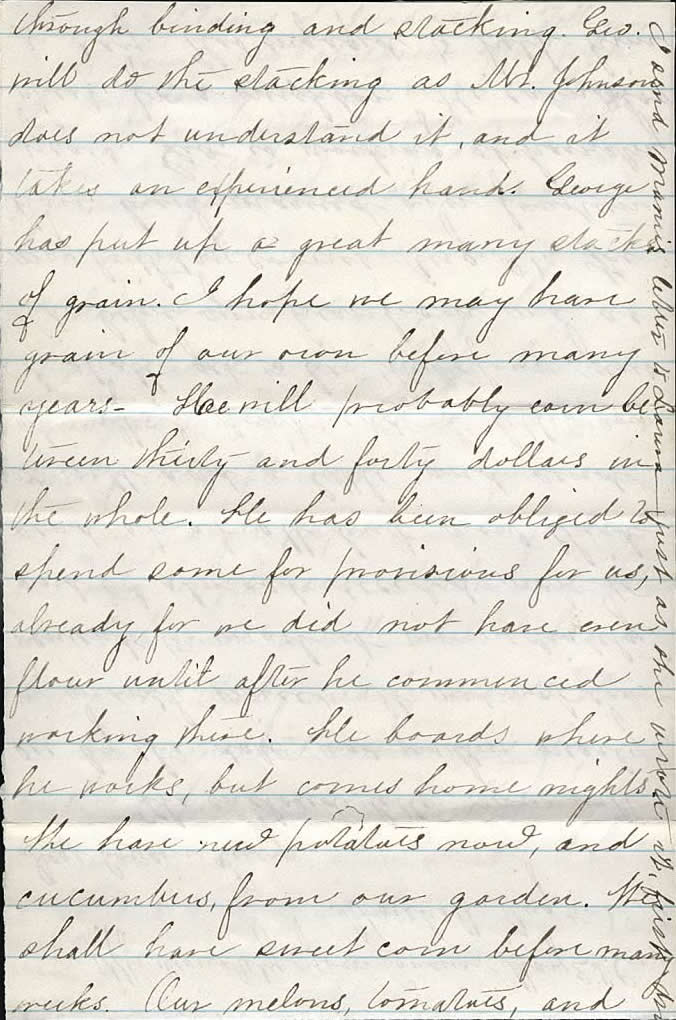 through binding and stacking. Geo.
will do the stacking as Mr. Johnson
does not understand it, and it
takes an experienced hand. George
has put up a great many stacks
of grain. I hope we may have
grain of our own before many
years- He will probably earn be
tween thirty and forty dollars in
the whole. He has been obliged to
spend some for provisions for us,
already, for we did not have even
flour until after he commenced
working there. He boards where
he works, but comes home nights.
We have new potatoes now, and
cucumbers, from our garden. We
shall have sweet corn before many
weeks. Our melons, tomatoes, and
I send Mamie's letter to Laura just as she wrote it, first